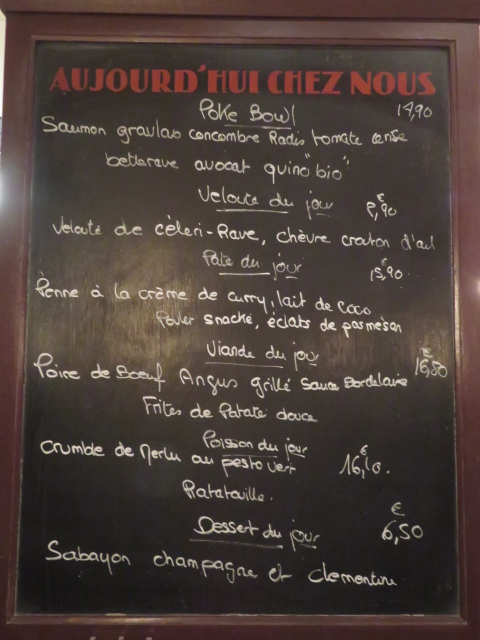 AUJOURD'HUI CHEZ NOUS
Poke Bowl 14,90
Saumon gravlax concombre Radis tomate cerise
betterave avocat quino "bio"
Velouté du jour €
Velouté de cèleri-Rave, chèvre crouton d'ail
Pate du jour € 15,90
Penne à la crème de curry, lait de coco
Poulet snacké, éclats de parmèsan
Viande du jour € 16,50
Poire de Boeuf Angus grillé Sauce Bordelaise
Frites de Patate douce
Poisson du jour
Crumble de Merlu au pesto vert € 16,10.
Ratatouille.
Dessert du jour € 6,50
Sabayon champagne et clementine